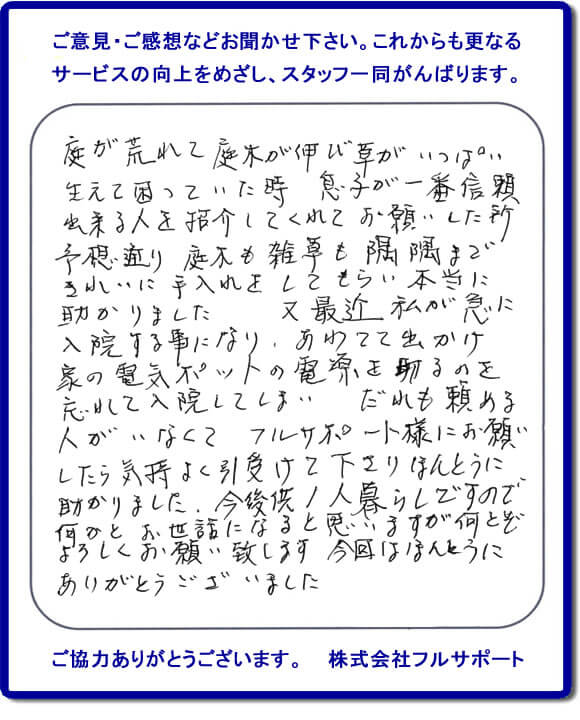 ご意見・ご感想などお聞かせ下さい。これからも更なる
サービスの向上をめざし、スタッフ一同がんばります。
庭が荒れて庭木が伸び草がいっぱい
生えて困っていた時 息子が一番信頼
出来る人を紹介してくれてお願いした所
予想通り 庭木も雑草も隅隅まで
きれいに手入れをしてもらい本当に
助かりました 又最近私が急に
入院する事になり、あわてて出かけ
家の電気ポットの電源を切るのを
忘れて入院してしまい だれも頼める
人がいなくて フルサポート様にお願い
したら気持よく引受けて下さりほんとうに
助かりました。今後供1人暮らしですので
何かとお世話になると思いますが何とぞ
よろしくお願い致します 今回はほんとうに
ありがとうございました
ご協力ありがとうございます。 株式会社フルサポート